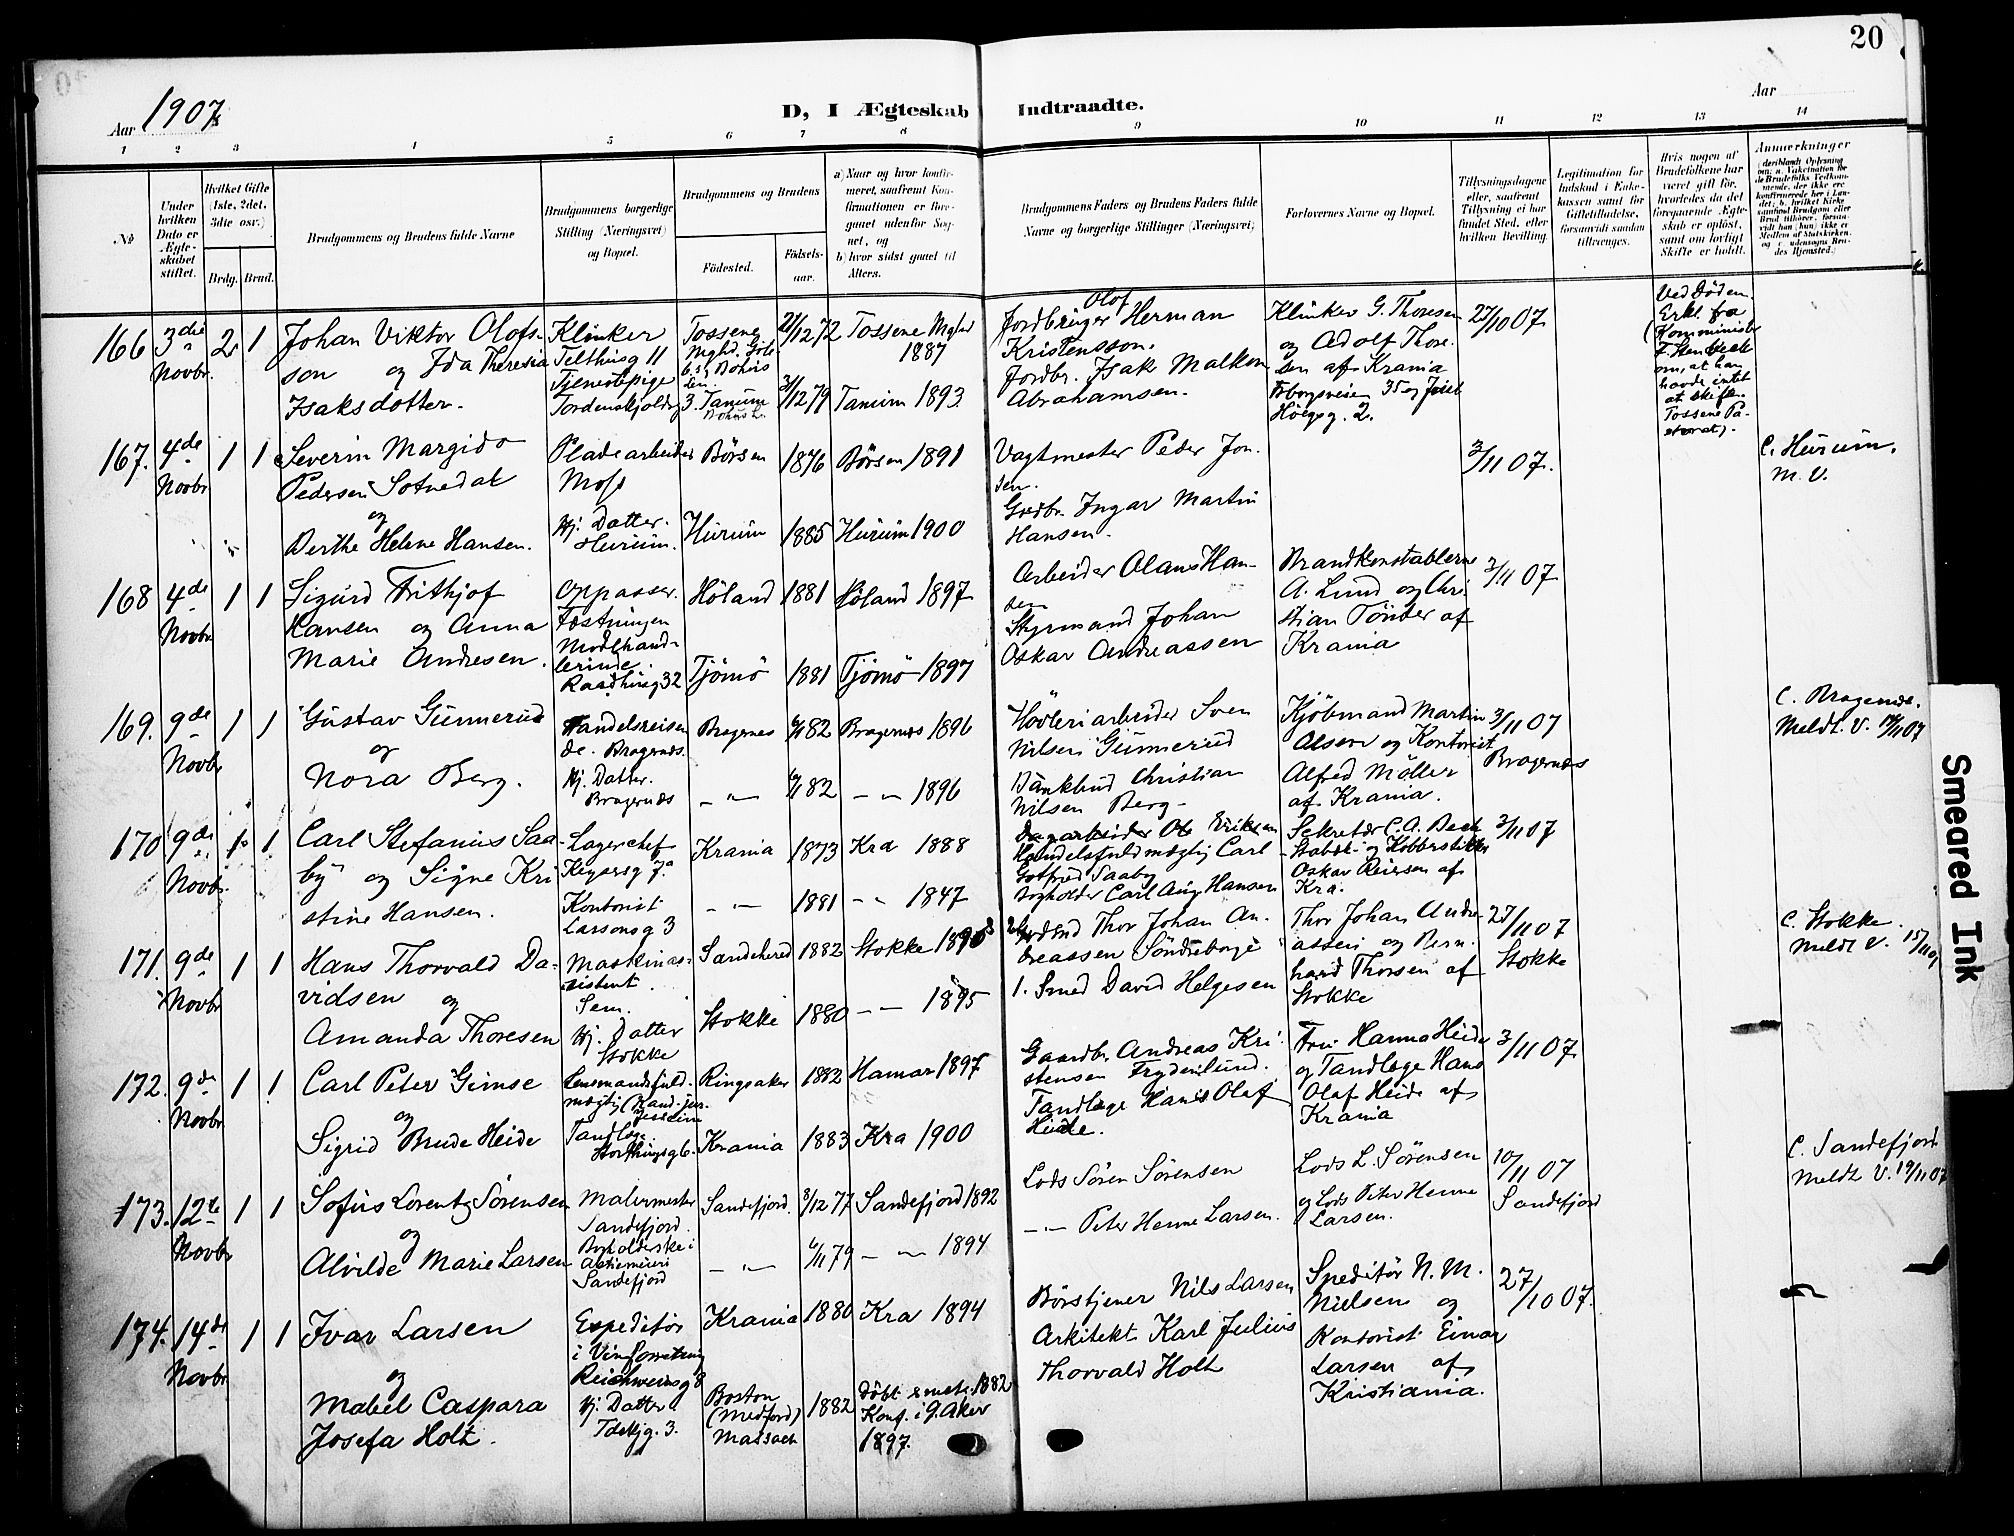 20
Aar 1907
D, I Ægteskab Indtraadte.
Aar
1 2 3 4 5 6 7 8 9 10 11 12 13 14
No
Under hvilken Dato er Ægteskabet stiftet.
Hvilket Gifte (1ste, 2det, 3die osv.)
Brdg. Brud.
Brudgommens og Brudens fulde Navne
Brudgommens borgerlige Stilling (Næringsvei) og Bopæl.
Brudgommens og Brudens
Födested. Födselsaar.
a) Naar og hvor konfirmeret, saafremt Konfirmationen er foregaaet udenfor Sognet, og
b) hvor sidst gaaet til Alters.
Brudgommens Faders og Brudens Faders fulde Navne og borgerlige Stillinger (Næringsvei)
Forlovernes Navne og Bopæl.
Tillysningsdagene eller, saafremt Tillysning ei har fundet Sted, efter hvilken Bevilling.
Legitimation for Indskud i Enkekassen samt for Giftetilladelse, forsaavidt saadan tiltrænges.
Hvis nogen af Brudefolkene har været gift før, hvorledes da det foregaaende Ægteskab er opløst, samt om lovligt Skifte er holdt.
Anmerkninger
166 3die Novbr. 2 1
Johan Viktor Olofsson og Ida Theresia Isaksdotter.
Klinker Telthusg 11
Tjenestepige Tordenskjoldsg 3.
Tossene Mghd. Göteb. s: Bohuslen. 21/12 72 Tossene Mghd 1887
Tanum Bohusl. 31/12 79 Tanum 1893.
Jordbruger Olof Herman Kristensson.
Jordbr. Isak Malkom Abrahamsen.
Klinker G. Thoresen og Adolf Thoresen af Krania
27/10 07.
Ved Døden. Erkl. fra Komminister
om, at han havde intet at skifte. Tossene Pastorat).
167. 4de Novbr 1 1
Severin Margido Pedersen Sotnedal
og
Berthe Helene Hansen.
Pladearbeider Moss
Hj. Datter. Hurum.
Börsen 1876 Börsen 1891
Hurum 1885 Hurum 1900
Vagtmester Peder Jonsen.
Grdbr. Ingar Martin Hansen.
3/11 07.
C. Hurum. M. V.
168 4de Novbr 1 1
Sigurd Frithjof Hansen og Anna Marie Andresen.
Oppasser. Fæstningen
Modehandlerinde Raadhusg 32
Höland 1881 Höland 1897
Tjömö 1881 Tjömö 1897
Arbeider Olaus Hansen
Styrmand Johan Oskar Andreassen
Brandkonstablerne A. Lund og Christian Tönder af Krania
3/11 07
169. 9de Novbr 1 1
Gustav Gunnerud
og
Nora Berg.
Handelsreisende. Bragernes.
Hj. Datter. Bragernæs
Bragernes 82 Bragernæs 1896
— " — 82 — " — 1896
Høvleriarbeider Sven Nilsen Gunnerud
Bankbud Christian Nilsen Berg
Kjöbmand Martin Olsen og Kontorist Alfred Möller af Krania.
3/11 07 Bragernæs
C. Bragernæs. Meldt. V. 14/11 07
170 9de Novbr. 1 1
Carl Stefanius Saaby og Signe Kristine Hansen.
Lagerchef Keysersg 7a
Kontorist Larsensg 3
Krania 1873 Kra 1888
— " — 1881 — " 1847
Dagarbeider Ole Eriksen
Handelsfuldmægtig Carl Gotfred Saaby
Bogholder Carl Aug. Hansen
Sekretær C. A. Beck og Kobberstikker Oskar Reiersen af Kra.
3/11 07
171. 9de Novbr 1 1
Hans Thorvald Davidsen og
Amanda Thoresen
Maskinassistent. Sem.
Hj. Datter Stokke
Sandeherred 1882 Stokke 1896
Stokke 1880 — " — 1895
2. Thor Johan Andreassen Söndreborge
1. Smed David Helgesen
Thor Johan Andreassen og Bernhard Thorsen af Stokke
27/11 07 Stokke
C. Stokke. Meldt V. 15/11 07
172. 9de Novbr 1 1
Carl Peter Gimse
og
Sigrid Brude Heide
Lensmandsfuldmægtig (Kand. jur. Jessheim
Tandlæge. Storthingsg 6.
Ringsaker 1882 Hamar 1897
Krania 1883 Kra 1900
Gaardbr. Andreas Kristensen Frydenlund.
Tandlæge Hans Olaf Heide.
Fru Hanna Heide og Tandlæge Hans Olaf Heide af Krania
3/11 07
173. 12te Novbr 1 1
Sofus Lorentz Sörensen
og
Alvilde Marie Larsen
Malermester Sandefjord.
Bogholderske i Aktiemeieri Sandefjord
Sandefjord. 8/12 77 Sandefjord 1892
— " — 6/11 79 — " — 1894
Lods Sören Sörensen
— " — Peter Henne Larsen.
Lods L. Sörensen og Lods Peter Henne Larsen.
10/11 07 Sandefjord
C. Sandefjord. Meldt V. 19/11 07
174. 14de Novbr 1 1
Ivar Larsen
og
Mabel Caspara Josefa Holt.
Expeditör i Vinforretning Reichweinsg 8
Hj. Datter
Krania 1880 Kra 1894
Boston (Medford) Massach 1882 döbt smsts. 1882 Konf. i g. Aker 1897.
Börstjener Nils Larsen
Arkitekt Karl Julius Thorvald Holt
Speditör N. M. Nielsen og Kontorist Einar Larsen af Kristiania.
27/10 07.
Smeared Ink